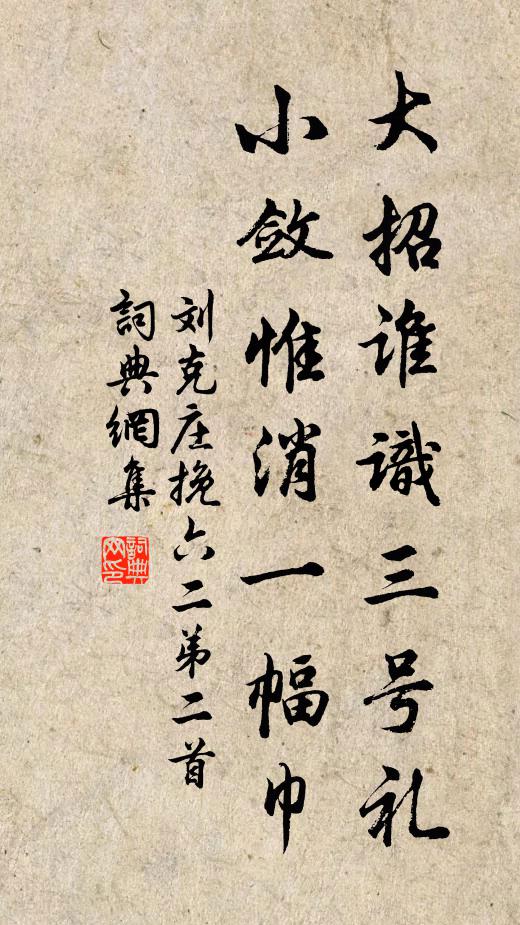 大招谁識三号礼
小敛惟消一幅巾
刘克庄挽六二弟二首
詞典網集
詞典网印